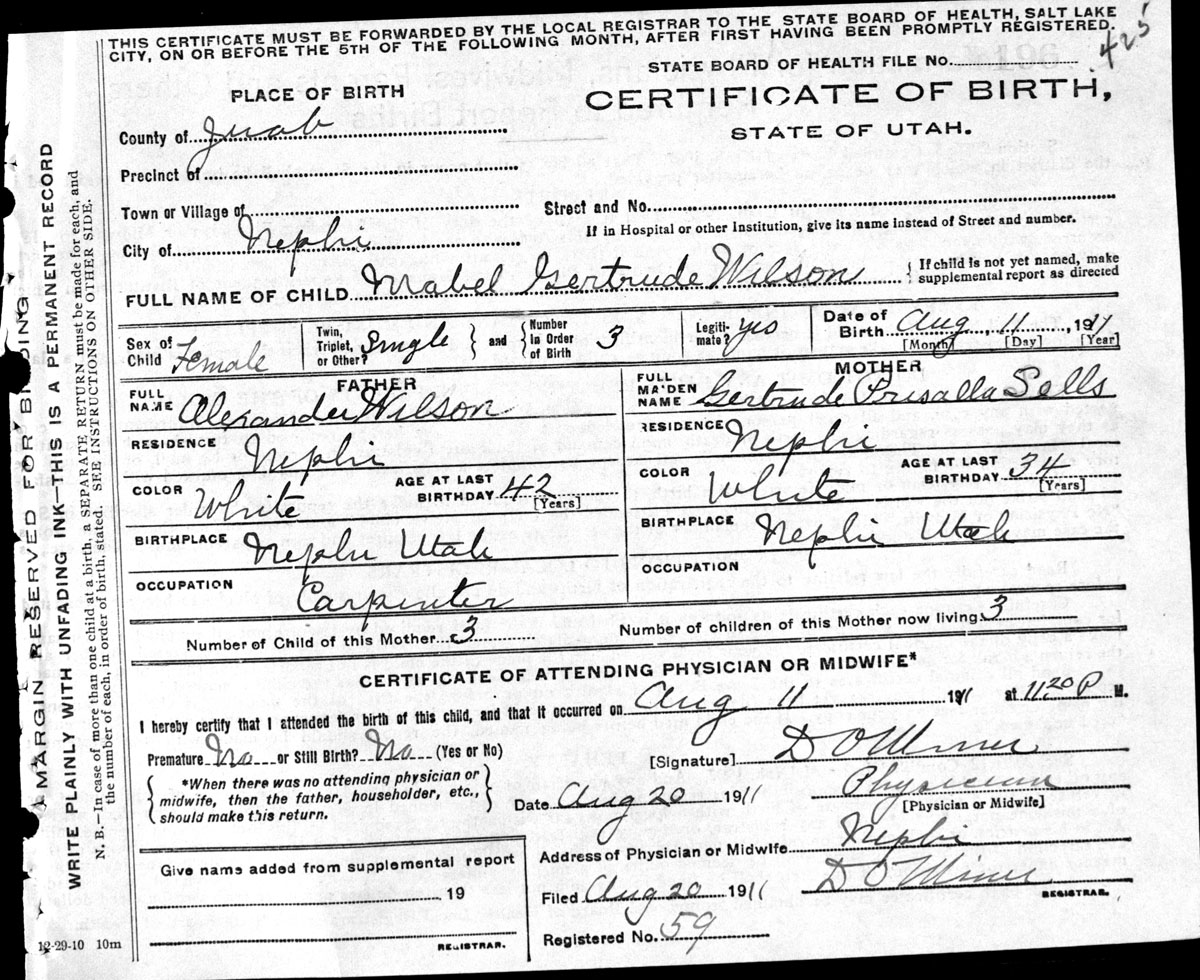 THIS CERTIFICATE MUST BE FORWARDED BY THE LOCAL REGISTRAR TO THE STATE BOARD OF HEALTH, SALT LAKE
CITY, ON OR BEFORE THE 5TH OF THE FOLLOWING MONTH, AFTER FIRST HAVING BEEN PROMPTLY REGISTERED.
425
STATE BOARD OF HEALTH FILE No.
PLACE OF BIRTH
CERTIFICATE OF BIRTH,
STATE OF UTAH.
County of Juab
Precinct of
Town or Village of
Street and No.
If in Hospital or other Institution, give its name instead of Street and number.
City of Nephi
FULL NAME OF CHILD Mabel Gertrude Wilson
{ If child is not yet named, make
supplemental report as directed
Sex of
Child Female
Twin,
Triplet,
or Other? Single
} and {
Number
in Order
of Birth 3
Legiti-
mate? yes
Date of
Birth Aug, 11, 1911
[Month] [Day] [Year]
FATHER
FULL
NAME Alexander Wilson
RESIDENCE Nephi
COLOR White
AGE AT LAST
BIRTHDAY 42
[Years]
BIRTHPLACE Nephi Utah
OCCUPATION Carpenter
MOTHER
FULL
MAIDEN
NAME Gertrude Prisalla Sells
RESIDENCE Nephi
COLOR White
AGE AT LAST
BIRTHDAY 34
[Years]
BIRTHPLACE Nephi Utah
OCCUPATION
Number of Child of this Mother 3
Number of children of this Mother now living 3
CERTIFICATE OF ATTENDING PHYSICIAN OR MIDWIFE*
I hereby certify that I attended the birth of this child, and that it occurred on Aug 11 1911 at 1120 P M.
Premature No or Still Birth? No (Yes or No)
{ *When there was no attending physician or
midwife, then the father, householder, etc.,
should make this return. }
[Signature] D O Miner
Date Aug 20 1911
Physician
[Physician or Midwife]
Address of Physician or Midwife Nephi
Give name added from supplemental report
19
REGISTRAR.
Filed Aug 20 1911
D O Miner
REGISTRAR.
Registered No. 59
12-29-10 10m
MARGIN RESERVED FOR BINDING
WRITE PLAINLY WITH UNFADING INK—THIS IS A PERMANENT RECORD
N. B.—In case of more than one child at a birth, a SEPARATE RETURN must be made for each, and
the number of each, in order of birth, stated. SEE INSTRUCTIONS ON OTHER SIDE.